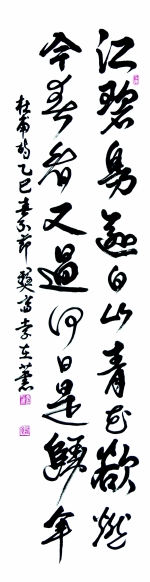 江碧鳥逾白山青花欲燃
今春看又過何日是歸年
杜甫詩乙巳春節賢書李在蕙